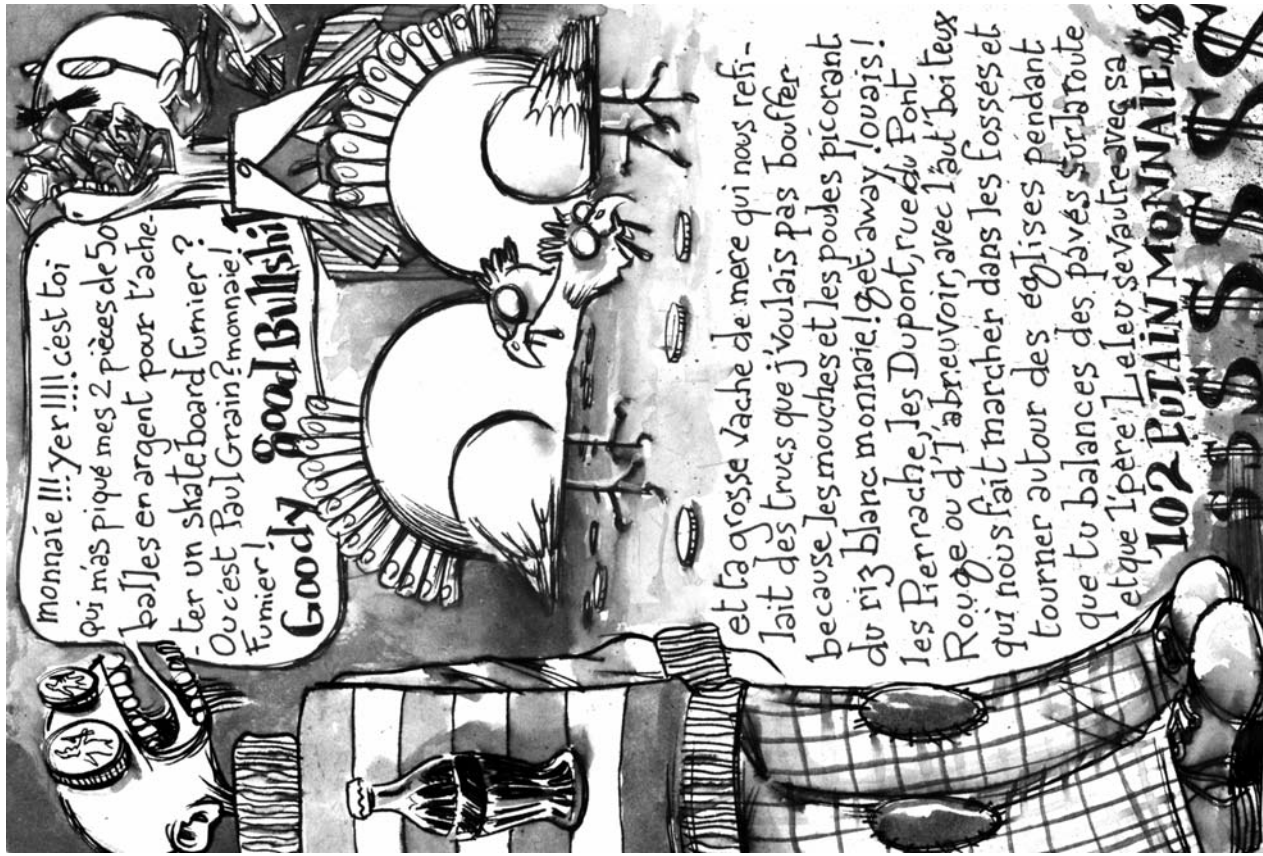 monnaie!!! yer!!!! c'est toi
qui m'as piqué mes 2 pièces de 50
balles en argent pour t'ache-
-ter un skateboard fumier ?
Ou c'est Paul Grain? monnaie!
Fumier!
Goody good Bullshit
et ta grosse vache de mère qui nous refi-
lait des trucs que j'voulais pas bouffer
because les mouches et les poules picorant
du riz blanc monnaie! get away! ouais!
les Pierrache, les Dupont, rue du Pont
Rouge ou d'l'abreuvoir, avec l'aut' boiteux
qui nous fait marcher dans les fossés et
tourner autour des églises pendant
que tu balances des pavés sur la route
et que l'père Leleu se vautre avec sa
102 PUTAIN MONNAIE $$
$ $ $ $ $ $ $